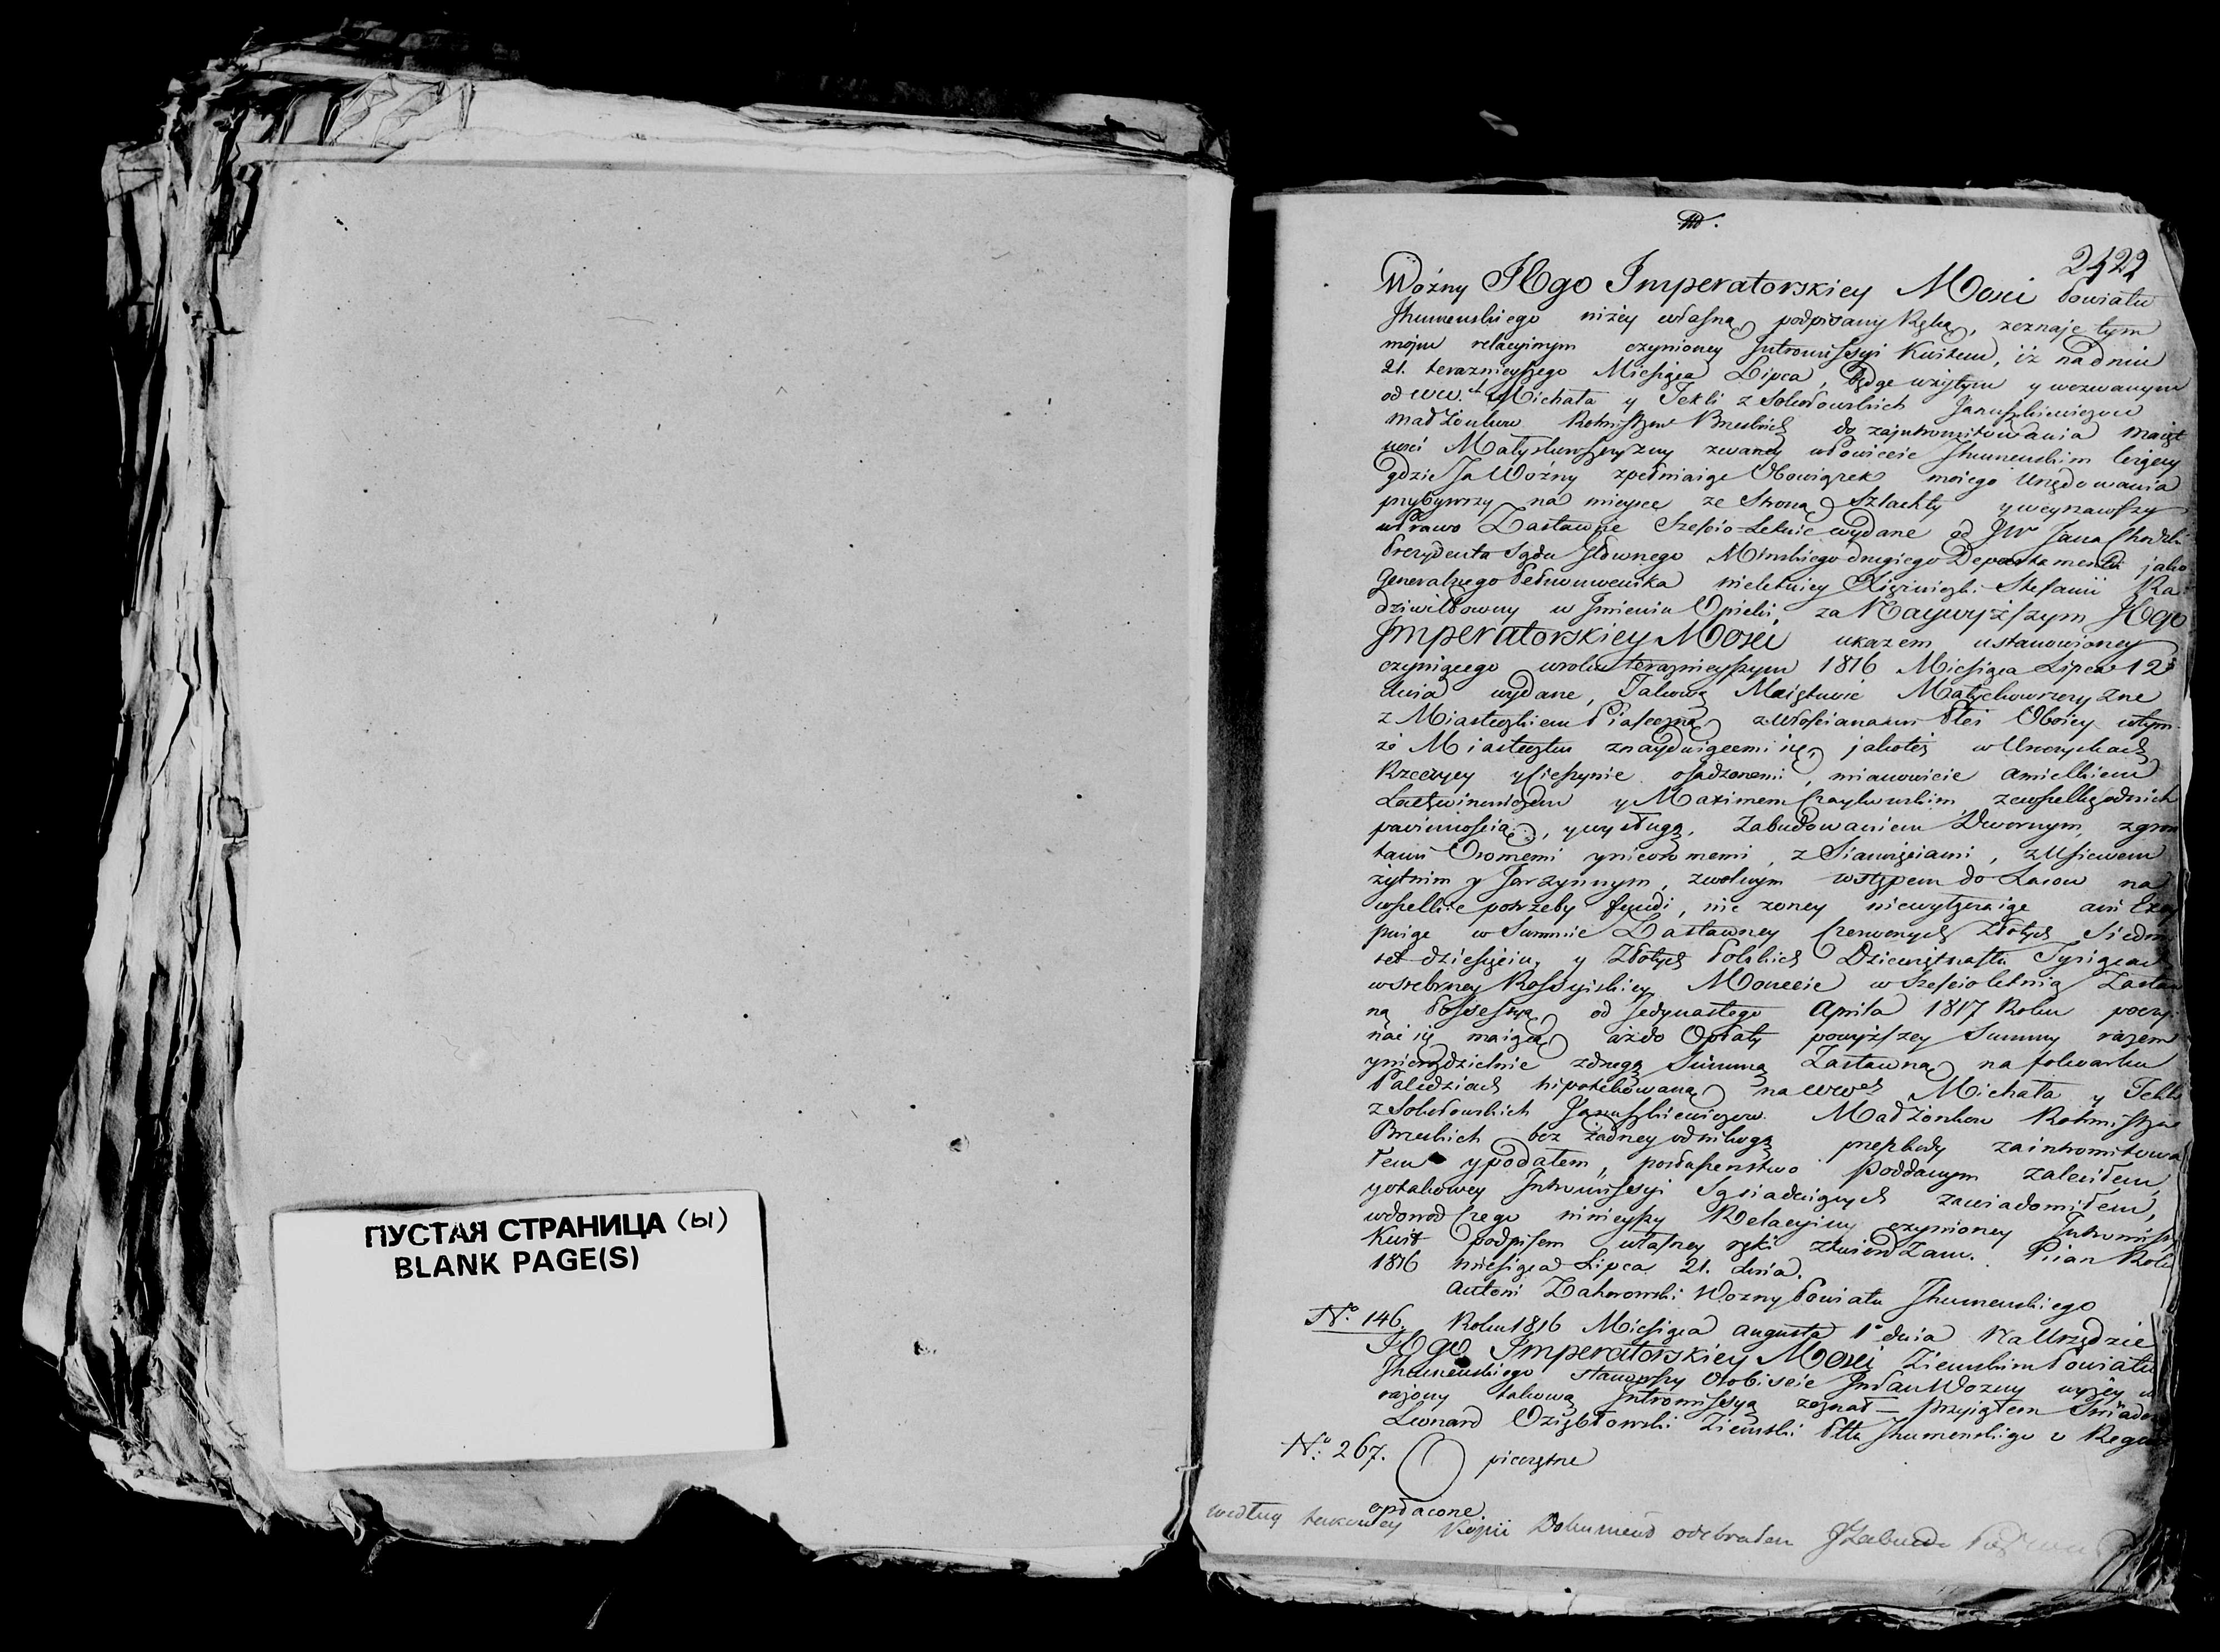 ПУСТАЯ СТРАНИЦА (Ы)
BLANK PAGE(S)
2422
Woźny JEgo Imperatorskiey Mosci Powiatu
Jhumenskiego niżey własną podpisany Ręką, zeznaję tym
moim relacyinym czynioney Intromissyi Kwitem, iż na dniu
21. teraznieyszego Miesiąca Lipca, będąc użytym y wezwanym
od WW. Michała y Tekli z Sokołowskich Januszkiewiczow
Małżonkow Rotmistrzow Brzeskich do zaintromitowania Maięt
ności zwaney w Powiecie Jhumenskim leżącey
gdzie Ja Woźny zpełniaiąc Obowiązek moiego Urzędowania
przybywszy na mieysce ze Stroną Szlachty y weyrzawszy
w Prawo Zastawne Sześcio-Letnie wydane od JW Jana Chodźki
Prezydenta Sądu Głównego Minskiego drugiego Departamentu jako
Generalnego Pełnomocnika nieletniey Xiężniczki Stefanii Ra
dziwiłłowny w Jmieniu Opieki, za Naywyższym JEgo
Imperatorskiey Mosci ukazem ustanowioney
czyniącego w roku teraznieyszym 1816 Miesiąca Lipca 12
dnia wydane, Takową Maiętność
z Miasteczkiem Piaseczną z włościanami Płci Oboiey w tym
że Miasteczku znayduiącemi się, jakoteż w
Rzeczycy y Cieszynie osadzonemi, mianowicie
y Maximem z wszelką od nich
powinnością, y wysługą, Zabudowaniem Dwornym, z grun
tami Oromemi y nieoromemi, z Sianożęciami, z Usiewem
żytnim y Jarzynnym, z wolnym wstępem do Lasow na
wszelkie potrzeby fundi, nic z oney niewyłączaiąc ani Exy
puiąc w Summie Zastawney Czerwonych Złotych Siedm
set dziesięciu, y Złotych Polskich Dziewiętnastu Tysiącach
w srebrney Rossyiskiey Monecie w Sześcioletnią Zastaw
ną Possessyą, od jedynastego Aprila 1817 Roku poczy
nać się maiącą aż do Opłaty powyższey Summy razem
y nierozdzielnie z drugą Summą Zastawną na folwarku
hipotekowaną na WWch Michała y Tekli
z Sokołowskich Januszkiewiczow Małżonkow Rotmistrzow
Brzeskich bez żadney od nikogo przeszkody zaintromitowa
łem y podałem, posłuszenstwo Poddanym zaleciłem,
y o takowey Intromissyi Sąsiaduiących zawiadomiłem,
w dowod Czego ninieyszy Relacyiny czynioney Intromissyi
Kwit podpisem własney ręki ztwierdzam. Pisan Roku
1816 miesiąca Lipca 21. dnia.
Antoni Woźny Powiatu Jhumenskiego
No. 146. Roku 1816 Miesiąca Augusta 1 dnia Na Urzędzie
JEgo Imperatorskiey Mosci Ziemskim Powiatu
Jhumenskiego stanowszy Osobiscie Woźny wyżey w
rażony takową Intromissyą zeznał — przyiąłem Swiadczę
Leonard Oziębłowski Ziemski Pttu Jhumenskiego Regent
No. 267. pieczętne
opłacone.
według takowey Kopii Dokument odebrałem